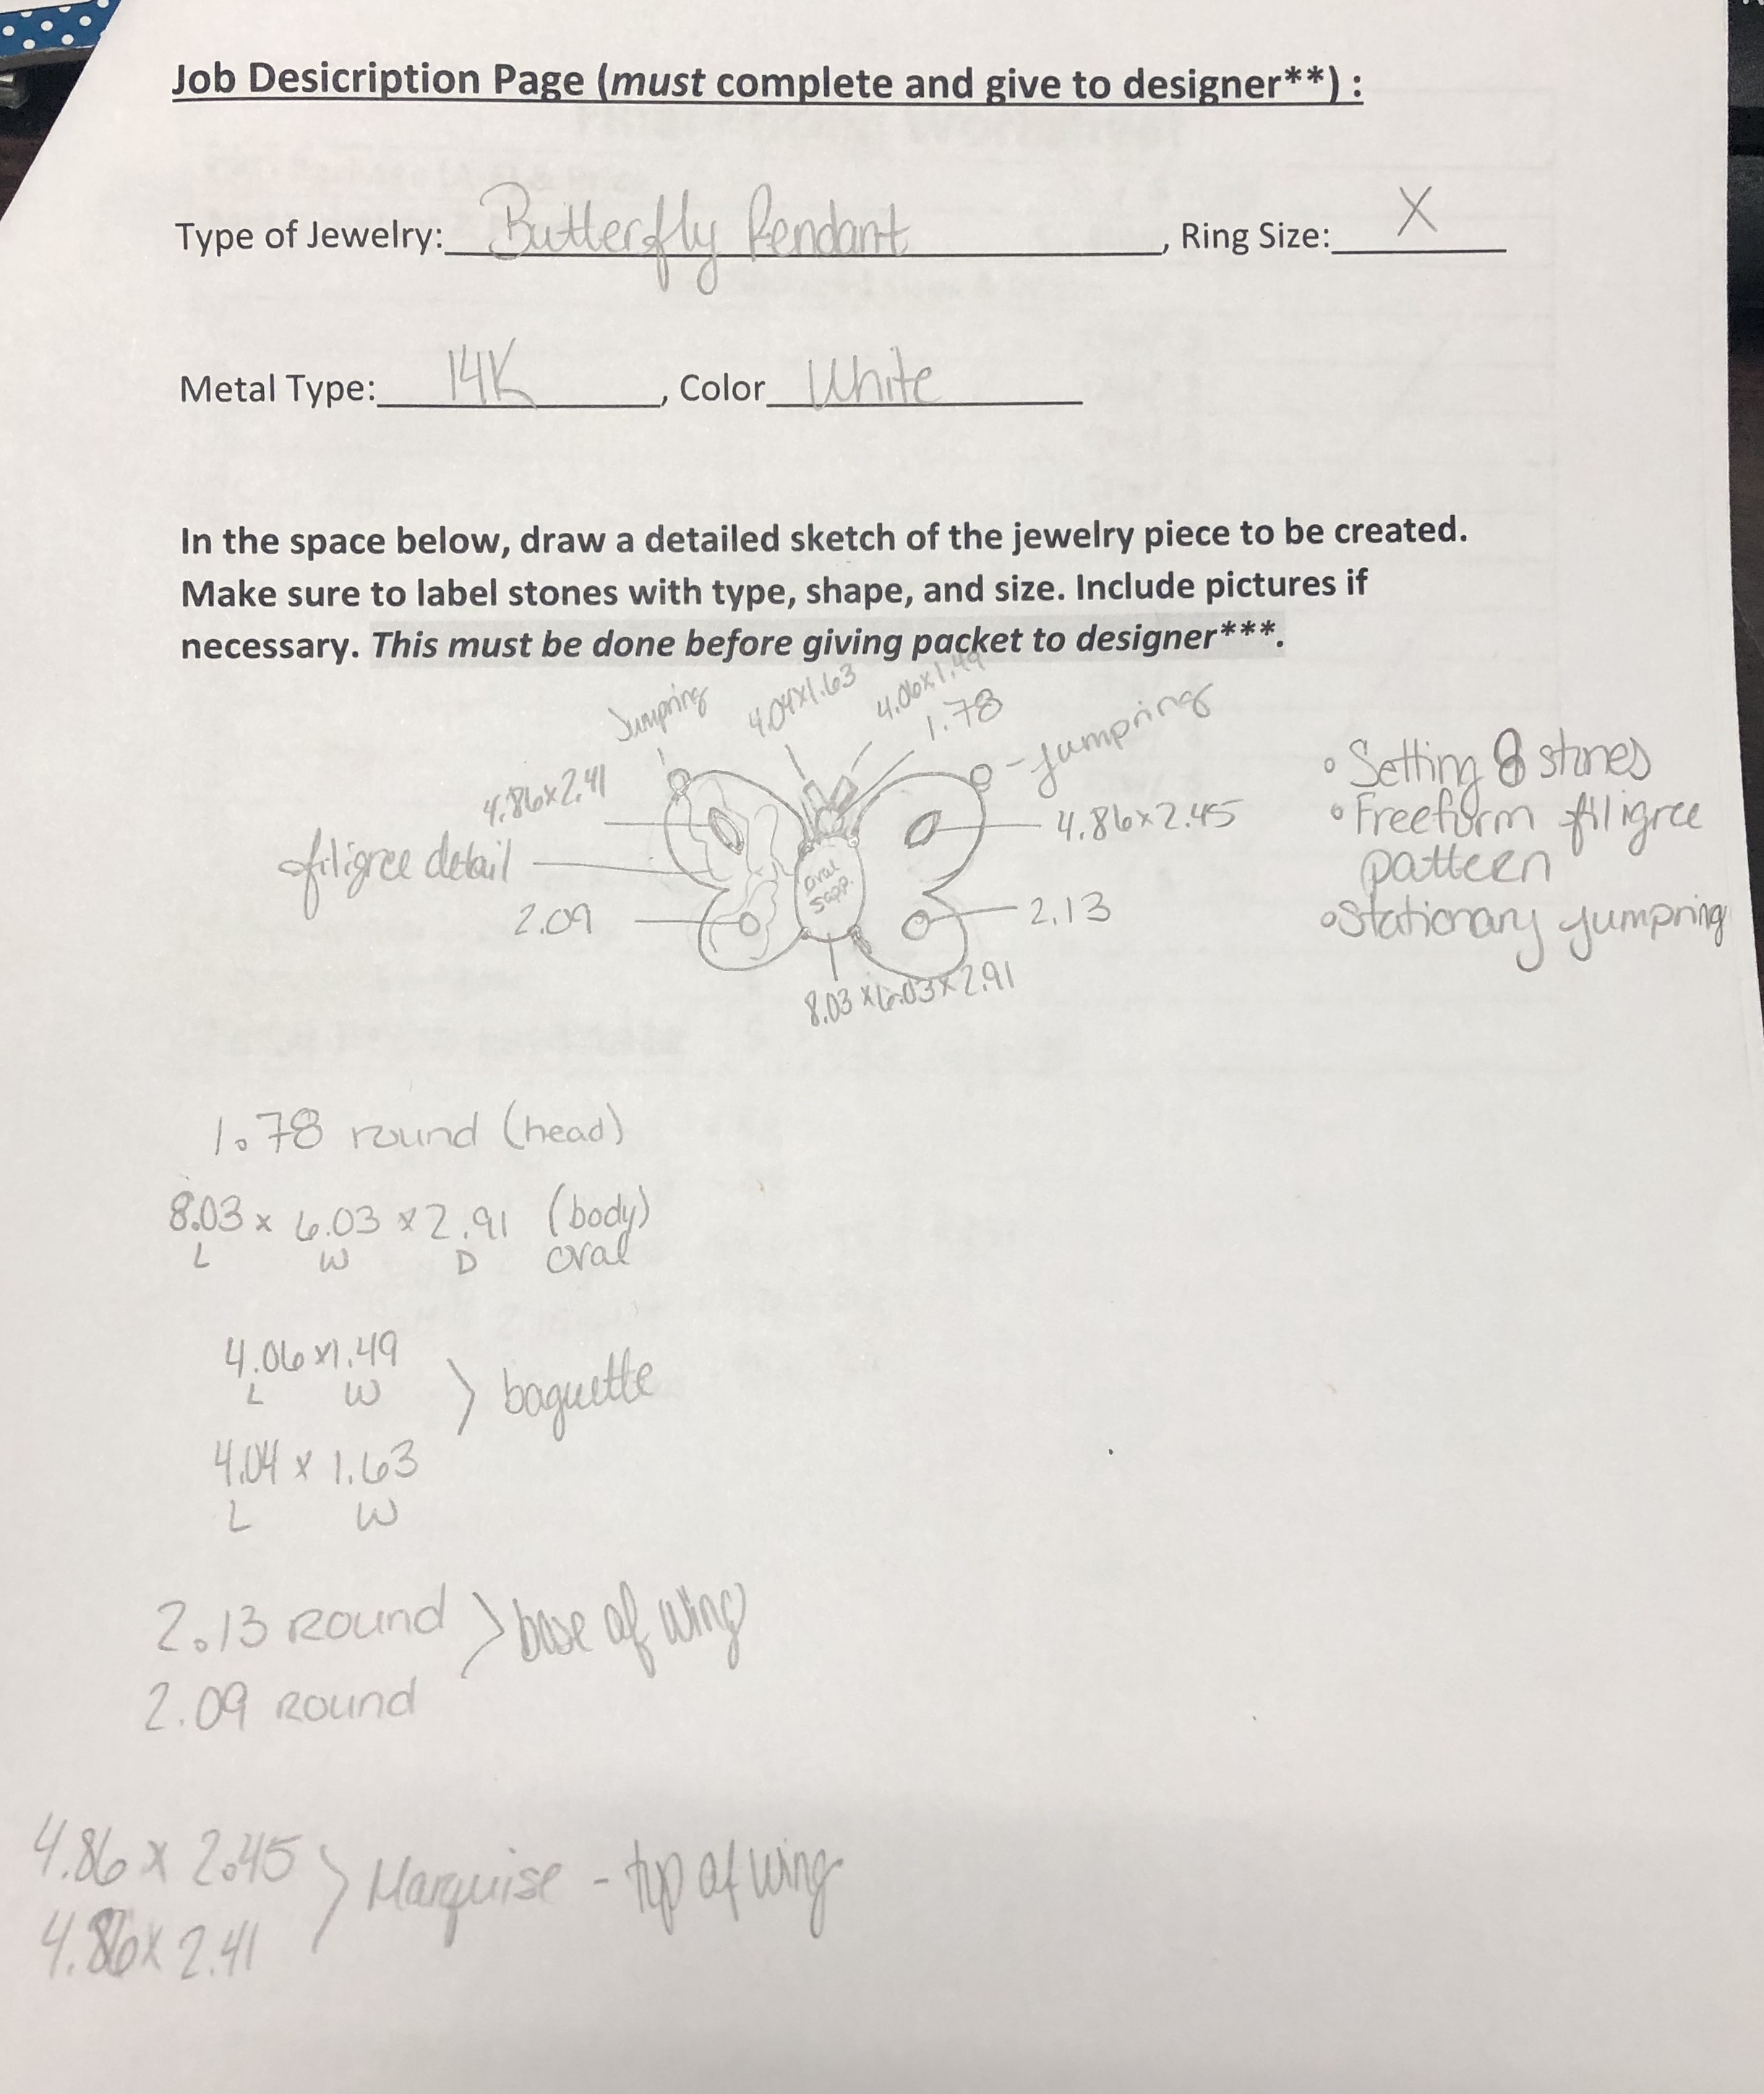 Job Desicription Page (must complete and give to designer**) :
Type of Jewelry: Butterfly Pendant, Ring Size: X
Metal Type: 14K, Color White
In the space below, draw a detailed sketch of the jewelry piece to be created.
Make sure to label stones with type, shape, and size. Include pictures if
necessary. This must be done before giving packet to designer***.
Jumpring
4.04x1.63
4.06x1.49
1.78
- Jumpring
4.86x2.41
4.86x2.45
filigree detail
oval
sapp.
2.09
2.13
8.03 x 6.03 x 2.91
• Setting 8 stones
• Freeform filigree
pattern
• Stationary jumpring
1.78 round (head)
8.03 x 6.03 x 2.91 (body)
L W D oval
4.06 x 1.49
L W
> baguette
4.04 x 1.63
L W
2.13 Round > base of wing
2.09 Round
4.86 x 2.45 > Marquise - top of wing
4.86 x 2.41